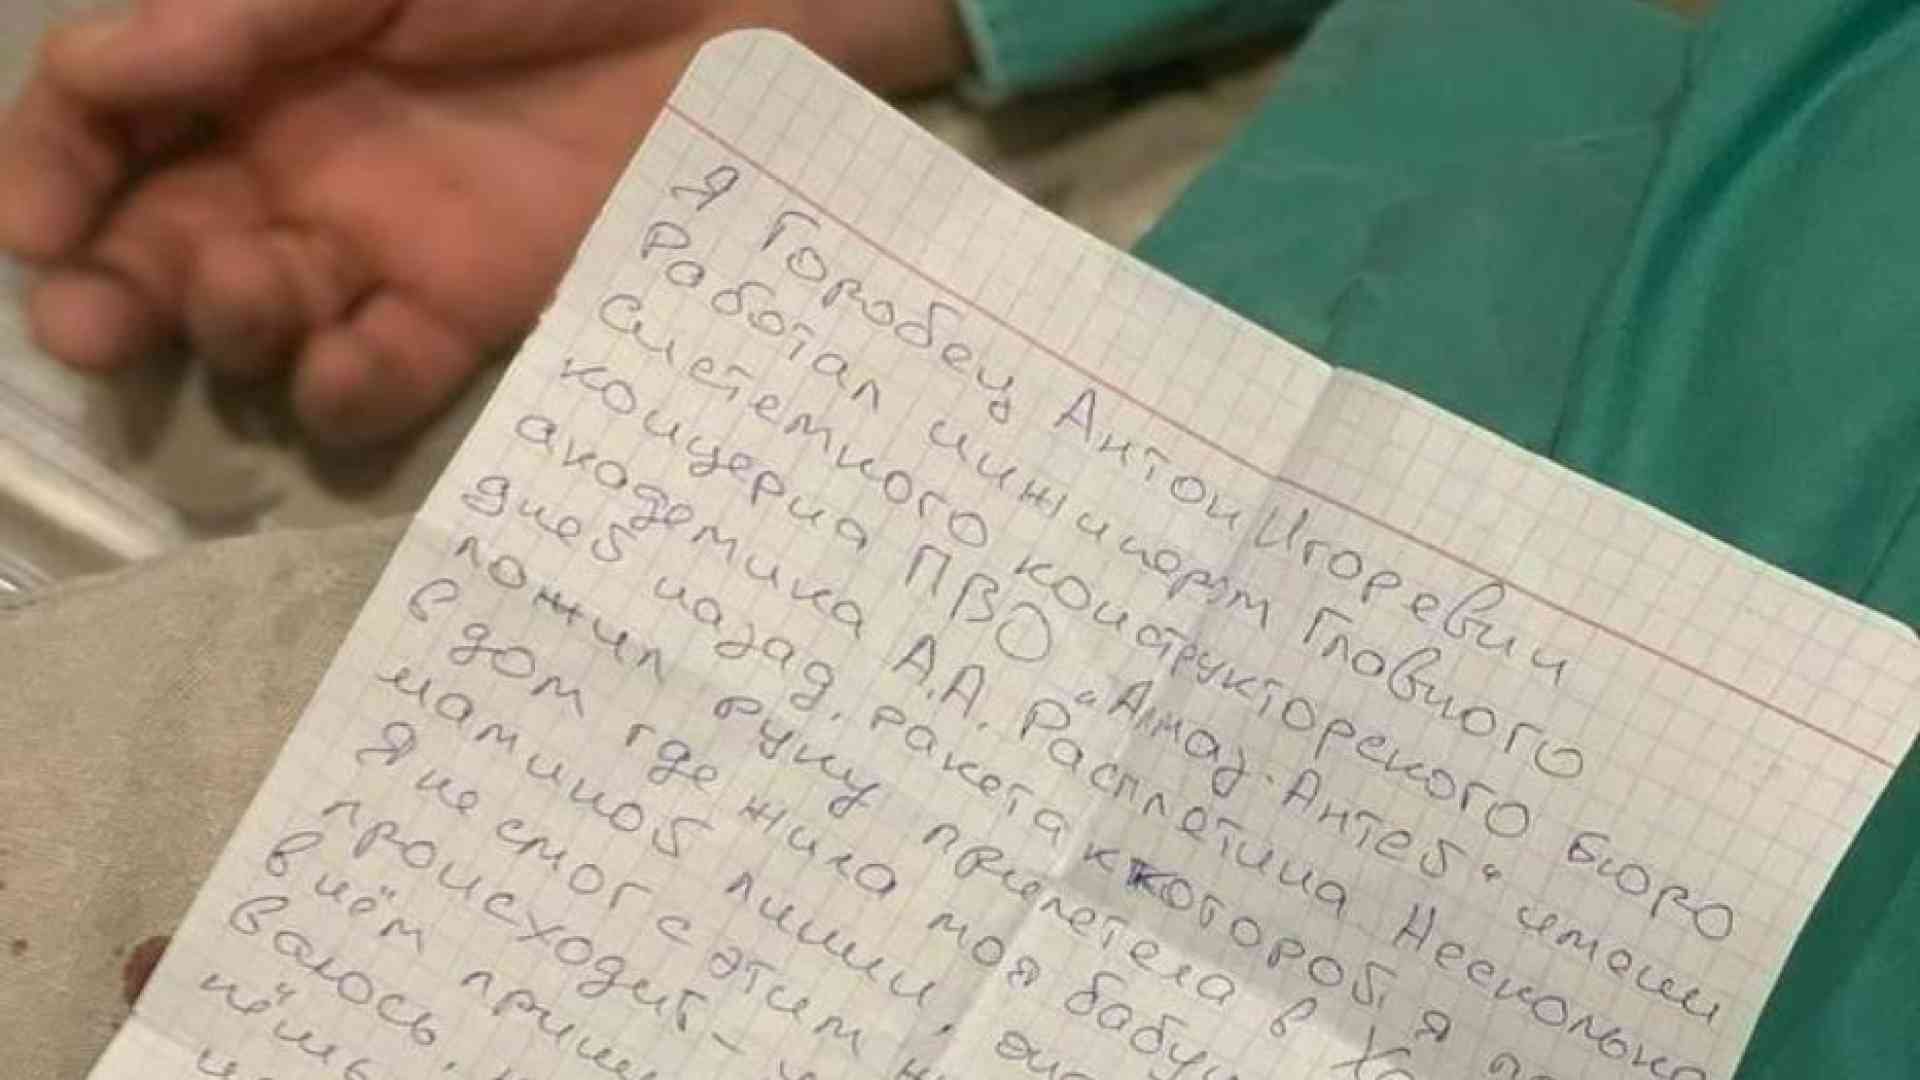 Я Горобец Антон Игоревич
Работал инжинером Главного
системного конструкторского бюро
концерна ПВО "Алмаз-Антей" имени
академика А.А. Расплетина Несколько
дней назад, ракета к которой я
ложил руку прилетела в
в дом где жила моя
маминой линии,
Я не смог с этим
происходит -
в нём